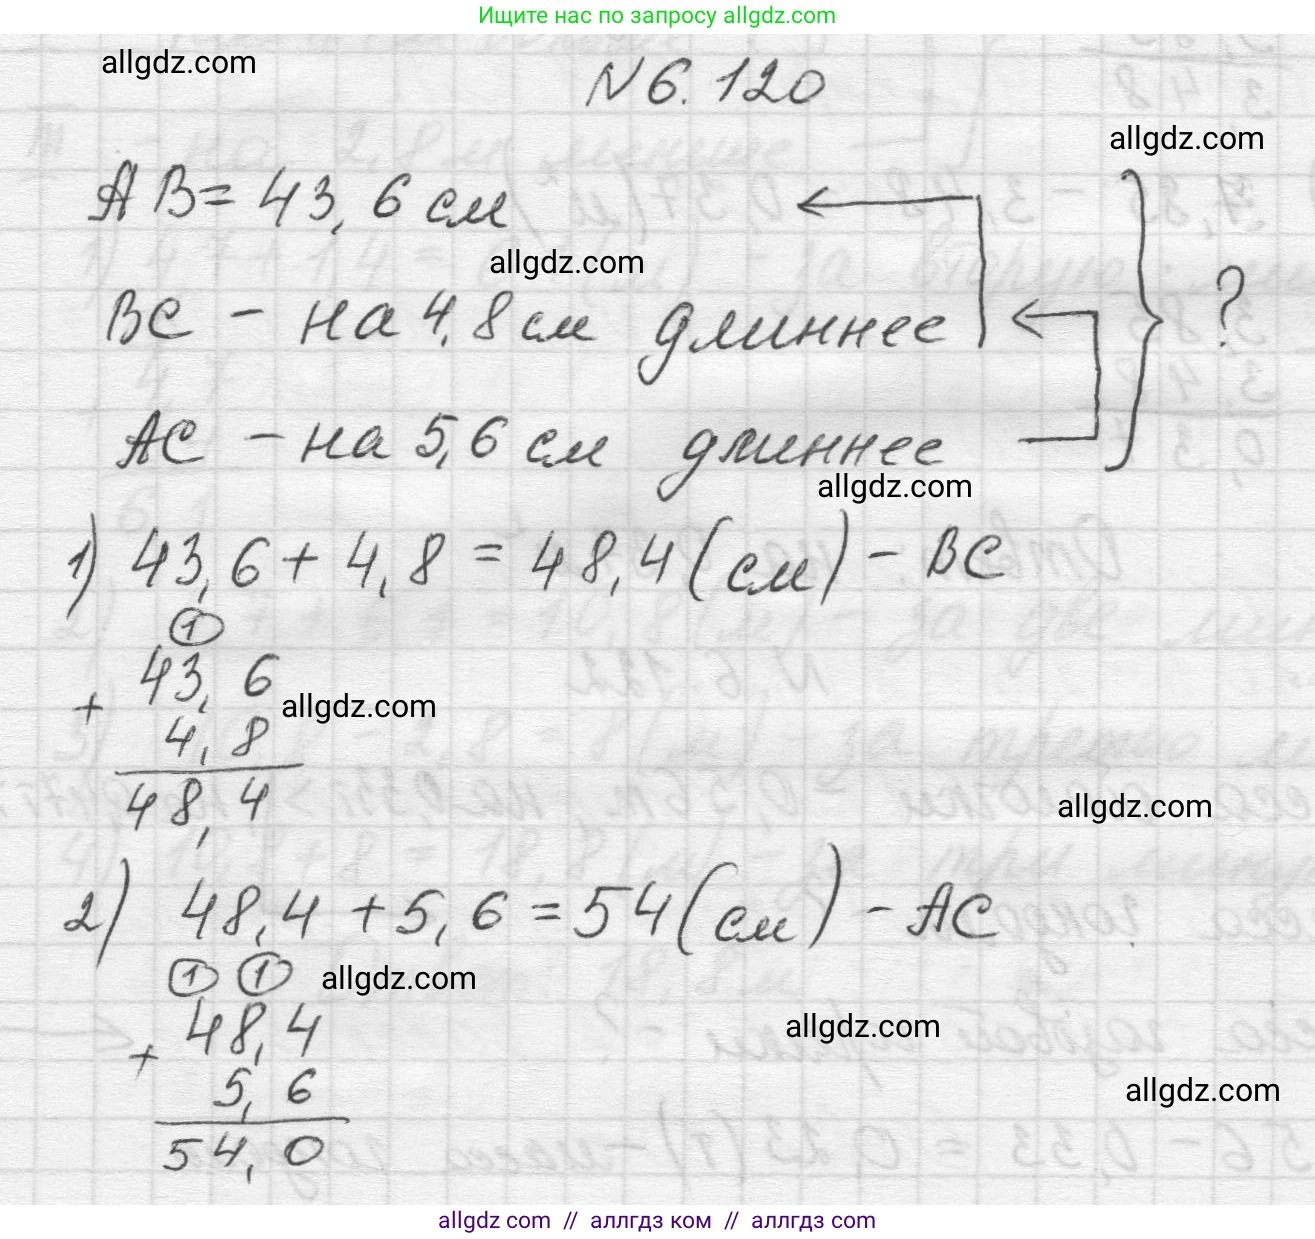 Ищите нас по запросу allgdz.com
allgdz.com
N 6.120
allgdz.com
AB = 43,6 см
allgdz.com
BC – на 4,8 см длиннее
?
AC – на 5,6 см длиннее
allgdz.com
1) 43,6 + 4,8 = 48,4 (см) – BC
1
43,6
+
allgdz.com
4,8
48,4
allgdz.com
2) 48,4 + 5,6 = 54 (см) – AC
1 1
allgdz.com
48,4
allgdz.com
+
5,6
allgdz.com
54,0
allgdz com // аллгдз ком // аллгдз com